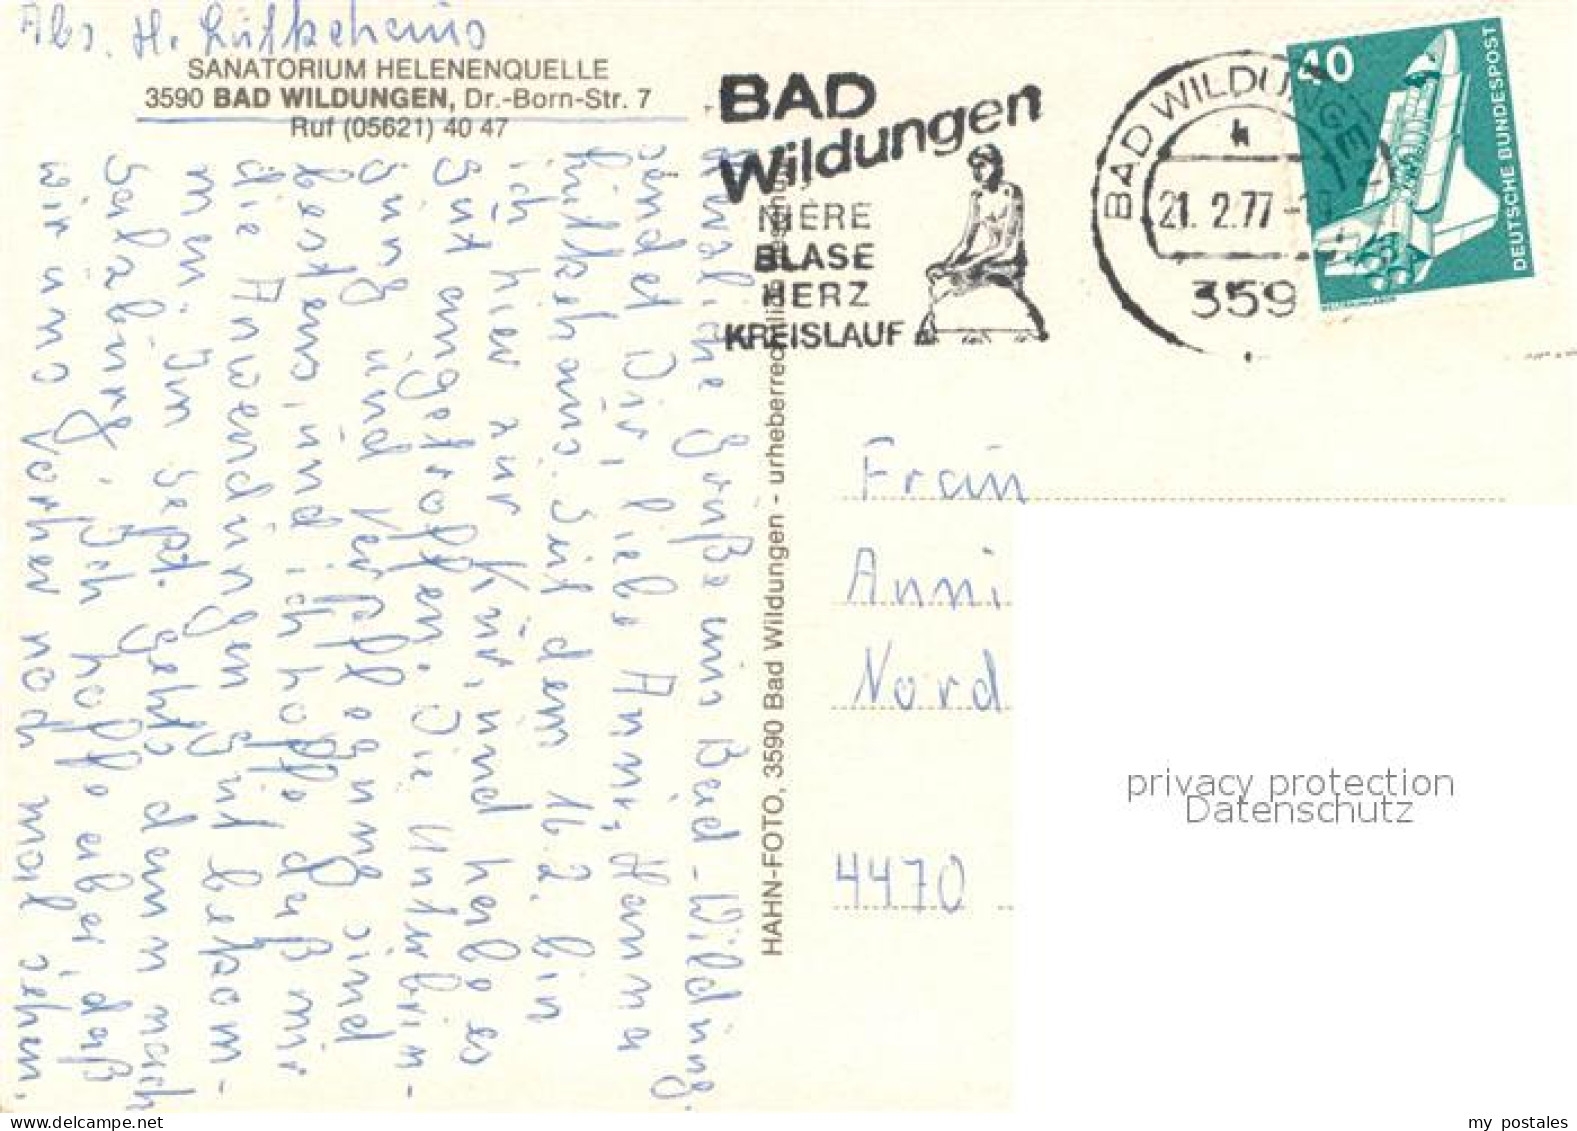 Abs. H. Lütkehaus
SANATORIUM HELENENQUELLE
3590 BAD WILDUNGEN, Dr.-Born-Str. 7
Ruf (05621) 40 47
Herzliche Grüße aus Bad-Wildung.
sendet Dir, liebe Anni, Hanna
Lütkehaus. Seit dem 16.2. bin
ich hier zur Kur, und habe es
gut angetroffen. Die Unterbrin-
gung und Verpflegung sind
bestens, und ich hoffe daß mir
die Anwendungen gut bekom-
men. Im Sept. gehts dann nach
Salzburg. Ich hoffe aber, daß
wir uns vorher noch mal sehen.
HAHN-FOTO, 3590 Bad Wildungen - urheberrechtlich geschützt
BAD
Wildungen
NIERE
BLASE
HERZ
KREISLAUF
BAD WILDUNGEN 1
k
21. 2.77
359
40
DEUTSCHE BUNDESPOST
Frau
Anni
Nord
4470
privacy protection
Datenschutz
my postales